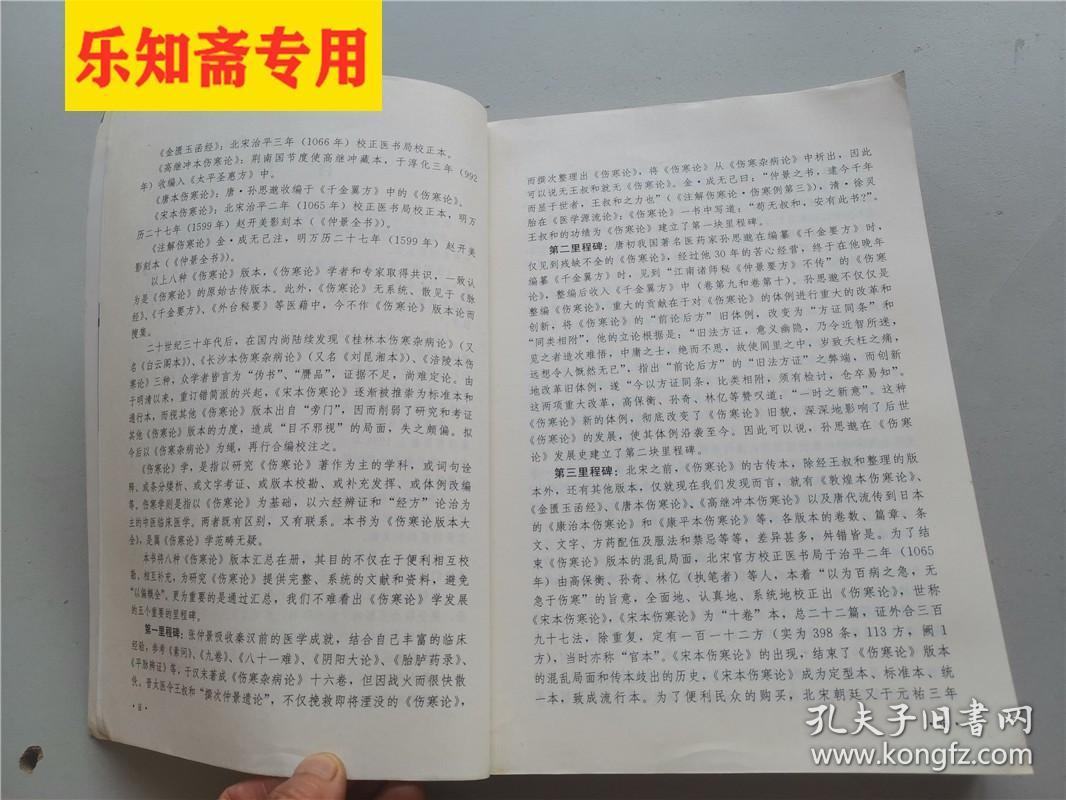 乐知斋专用
《金匮玉函经》：北宋治平三年（1066年）校正医书局校正本。
《高继冲本伤寒论》：荆南国节度使高继冲藏本，于淳化三年（992
年）收编入《太平圣惠方》中。
《唐本伤寒论》：唐·孙思邈收编于《千金翼方》中的《伤寒论》。
《宋本伤寒论》：北宋治平二年（1065年）校正医书局校正本，明万
历二十七年（1599年）赵开美影刻本（《仲景全书》）。
《注解伤寒论》金·成无己注，明万历二十七年（1599年）赵开美
影刻本（《仲景全书》）。
以上八种《伤寒论》版本，《伤寒论》学者和专家取得共识，一致认
为是《伤寒论》的原始古传版本。此外，《伤寒论》无系统、散见于《脉
经》、《千金要方》、《外台秘要》等医籍中，今不作《伤寒论》版本论而
搜集。
二十世纪三十年代后，在国内尚陆续发现《桂林本伤寒杂病论》（又
名《白云阁本》）、《长沙本伤寒杂病论》（又名《刘昆湘本》）、《涪陵本伤
寒论》三种，众学者皆言为“伪书”、“赝品”，证据不足，尚难定论。由
于明清以来，重订错简派的兴起，《宋本伤寒论》逐渐被推崇为标准本和
通行本，而视其他《伤寒论》版本出自“旁门”，因而削弱了研究和考证
其他《伤寒论》版本的力度，造成“目不邪视”的局面，失之颇偏。拟
今后以《伤寒杂病论》为绳，再行合编校注之。
《伤寒论》学，是指以研究《伤寒论》著作为主的学科，或词句诠
释、或条分缕析、或文字考证、或版本校勘、或补充发挥、或体例改编
等。伤寒学则是指以《伤寒论》为基础，以六经辨证和“经方”论治为
主的中医临床医学。两者既有区别，又有联系。本书为《伤寒论版本大
全》，是属《伤寒论》学范畴无疑。
本书将八种《伤寒论》版本汇总在册，其目的不仅在于便利相互校
勘、相互补充，为研究《伤寒论》提供完整、系统的文献和资料，避免
“以偏概全”。更为重要的是通过汇总，我们不难看出《伤寒论》学发展
的五个重要的里程碑。
第一里程碑：张仲景吸收秦汉前的医学成就，结合自己丰富的临床
经验，参考《素问》、《九卷》、《八十一难》、《阴阳大论》、《胎胪药录》、
《平脉辨证》等，于汉末著成《伤寒杂病论》十六卷，但因战火而很快散
佚。晋太医令王叔和“撰次仲景遗论”，不仅挽救即将湮没的《伤寒论》，
·8·
而撰次整理出《伤寒论》，将《伤寒论》从《伤寒杂病论》中析出，因此
可以说无王叔和就无《伤寒论》。金·成无己曰：“仲景之书，逮今千年
而显于世者，王叔和之力也”（《注解伤寒论·伤寒例第三》），清·徐灵
胎在《医学源流论》：《伤寒论》一书中写道：“苟无叔和，安有此书？”。
王叔和的功绩为《伤寒论》建立了第一块里程碑。
第二里程碑：唐初我国著名医药家孙思邈在编纂《千金要方》时，
仅见到残缺不全的《伤寒论》，经过他30年的苦心经营，终于在他晚年
编纂《千金翼方》时，见到“江南诸师秘《仲景要方》不传”的《伤寒
论》，整编后收入《千金翼方》中（卷第九和卷第十）。孙思邈不仅仅是
整编《伤寒论》，重大的贡献在于对《伤寒论》的体例进行重大的改革和
创新，将《伤寒论》的“前论后方”旧体例，改变为“方证同条”和
“同类相附”，他的立论根据是：“旧法方证，意义幽隐，乃令近智所迷，
见之者造次难悟，中庸之士，绝而不思，故使闾里之中，岁致夭枉之痛，
远想令人慨然无已”，指出“前论后方”的“旧法方证”之弊端，而创新
地改革旧体例，遂“今以方证同条，比类相附，须有检讨，仓卒易知”。
这两项重大改革，高保衡、孙奇、林亿等赞叹道：“一时之新意”。这种
《伤寒论》新的体例，彻底改变了《伤寒论》旧貌，深深地影响了后世
《伤寒论》的发展，使其体例沿袭至今。因此可以说，孙思邈在《伤寒
论》发展史建立了第二块里程碑。
第三里程碑：北宋之前，《伤寒论》的古传本，除经王叔和整理的版
本外，还有其他版本，仅就现在我们发现而言，就有《敦煌本伤寒论》、
《金匮玉函经》、《唐本伤寒论》、《高继冲本伤寒论》以及唐代流传到日本
的《康治本伤寒论》和《康平本伤寒论》等，各版本的卷数、篇章、条
文、文字、方药配伍及服法和禁忌等等，差异甚多，舛错皆是。为了结
束《伤寒论》版本的混乱局面，北宋官方校正医书局于治平二年（1065
年）由高保衡、孙奇、林亿（执笔者）等人，本着“以为百病之急，无
急于伤寒”的旨意，全面地、认真地、系统地校正出《伤寒论》，世称
《宋本伤寒论》，《宋本伤寒论》为“十卷”本，总二十二篇，证外合三百
九十七法，除重复，定有一百一十二方（实为398条，113方，阙1
方），当时亦称“官本”。《宋本伤寒论》的出现，结束了《伤寒论》版本
的混乱局面和传本歧出的历史，《宋本伤寒论》成为定型本、标准本、统
一本，致成流行本。为了便利民众的购买，北宋朝廷又于元祐三年
孔夫子旧书网
www.kongfz.com